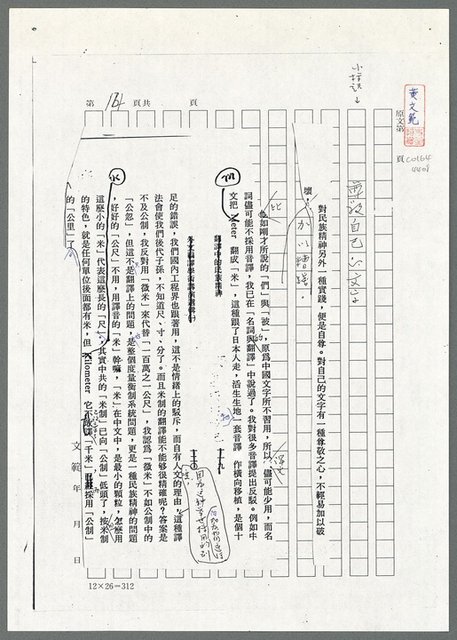 黃文範
原文第
頁 C0164
4401
小標題
尊敬自己的文字
對民族精神另外一種實踐，便是自尊。對自己的文字有一種尊敬之心，不輕易加以破
壞
加以增強。
比如剛才所說的「們」與「被」，原為中國文字所不習用，所以儘可能少用，而名
詞儘可能不採用音譯，我已在「名詞與翻譯」中說過了。我對很多音譯提出反駁。例如中
文把 Meter 翻成「米」，這種跟了日本人走，活生生地一套音譯 作橫向移植，是個十
翻譯中的民族精神
足的錯誤，我們國內工程界也跟著用，這不是情緒上的駁斥，而自有人文的理由，這種譯
法會使我們後代子孫，不知道尺、寸、分了。而且米制的翻譯能不能夠很精確呢？答案是
不及公制，我反對用「微米」來代替「百萬之一公尺」，我認為「微米」不如公制中的
「公忽」，但這不是翻譯上的問題，是整個度量衡制系統問題，更是一種民族精神的問題
，好好的「公尺」不用，用譯音的「米」幹嘛，「米」在中文中，是最小的顆粒，怎麼用
這麼小的「米」代表這麼長的「尺」，其實中共的「米制」已向「公制」低頭了，按米制
的特色，就是任何單位後面都有米，但 Kilometer 它不敢譯「千米」，採用「公制」
的「公里」了
第 161 頁共 頁
文範 年 月 日
12×26=312